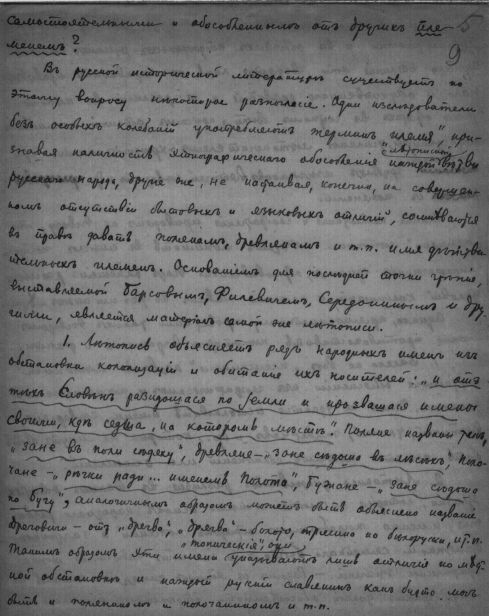 самостоятельнымъ и обособленнымъ отъ другихъ пле-
менемъ?
5
9
Въ русской исторической литературѣ существуетъ по
этому вопросу нѣкоторое разногласіе. Одни изслѣдователи
безъ особыхъ колебаній употребляютъ терминъ „племя", при-
знавая наличность этнографическаго обособленія
русскаго народа, другіе же, не настаивая, конечно, на совершен-
номъ отсутствіи бытовыхъ и языковыхъ отличій, сомнѣваются
въ правѣ давать полянамъ, древлянамъ и т.п. имя
племенъ. Основаніемъ для послѣдней точки зрѣнія,
выставляемой Барсовымъ, Филевичемъ, Середонинымъ и дру-
гими, является матеріалъ самой же лѣтописи.
1. Лѣтопись объясняетъ рядъ народныхъ именъ изъ
обстановки колонизаціи и обитанія ихъ носителей: „и отъ
тѣхъ Словѣнъ разидошася по земли и прозвашася имены
своими, кдѣ сѣдша, на которомъ мѣстѣ". Поляне названы такъ,
„зане въ поли сѣдяху", древляне – „зане сѣдоша въ лѣсѣхъ", поло-
чане – „рѣчки ради... именемъ Полота", бужане – „зане сѣдоша
по Бугу", аналогичнымъ образомъ можетъ быть объяснено названіе
дреговичи – отъ „дрегва", „дрягва" – болото, трясина по бѣлорусски, и т.п.
Такимъ образомъ эти имена „топическія", они указываютъ лишь отличія по мѣст-
ной обстановкѣ и каждый русскій славянинъ какъ будто могъ
быть и поляниномъ и полочаниномъ и т.п.